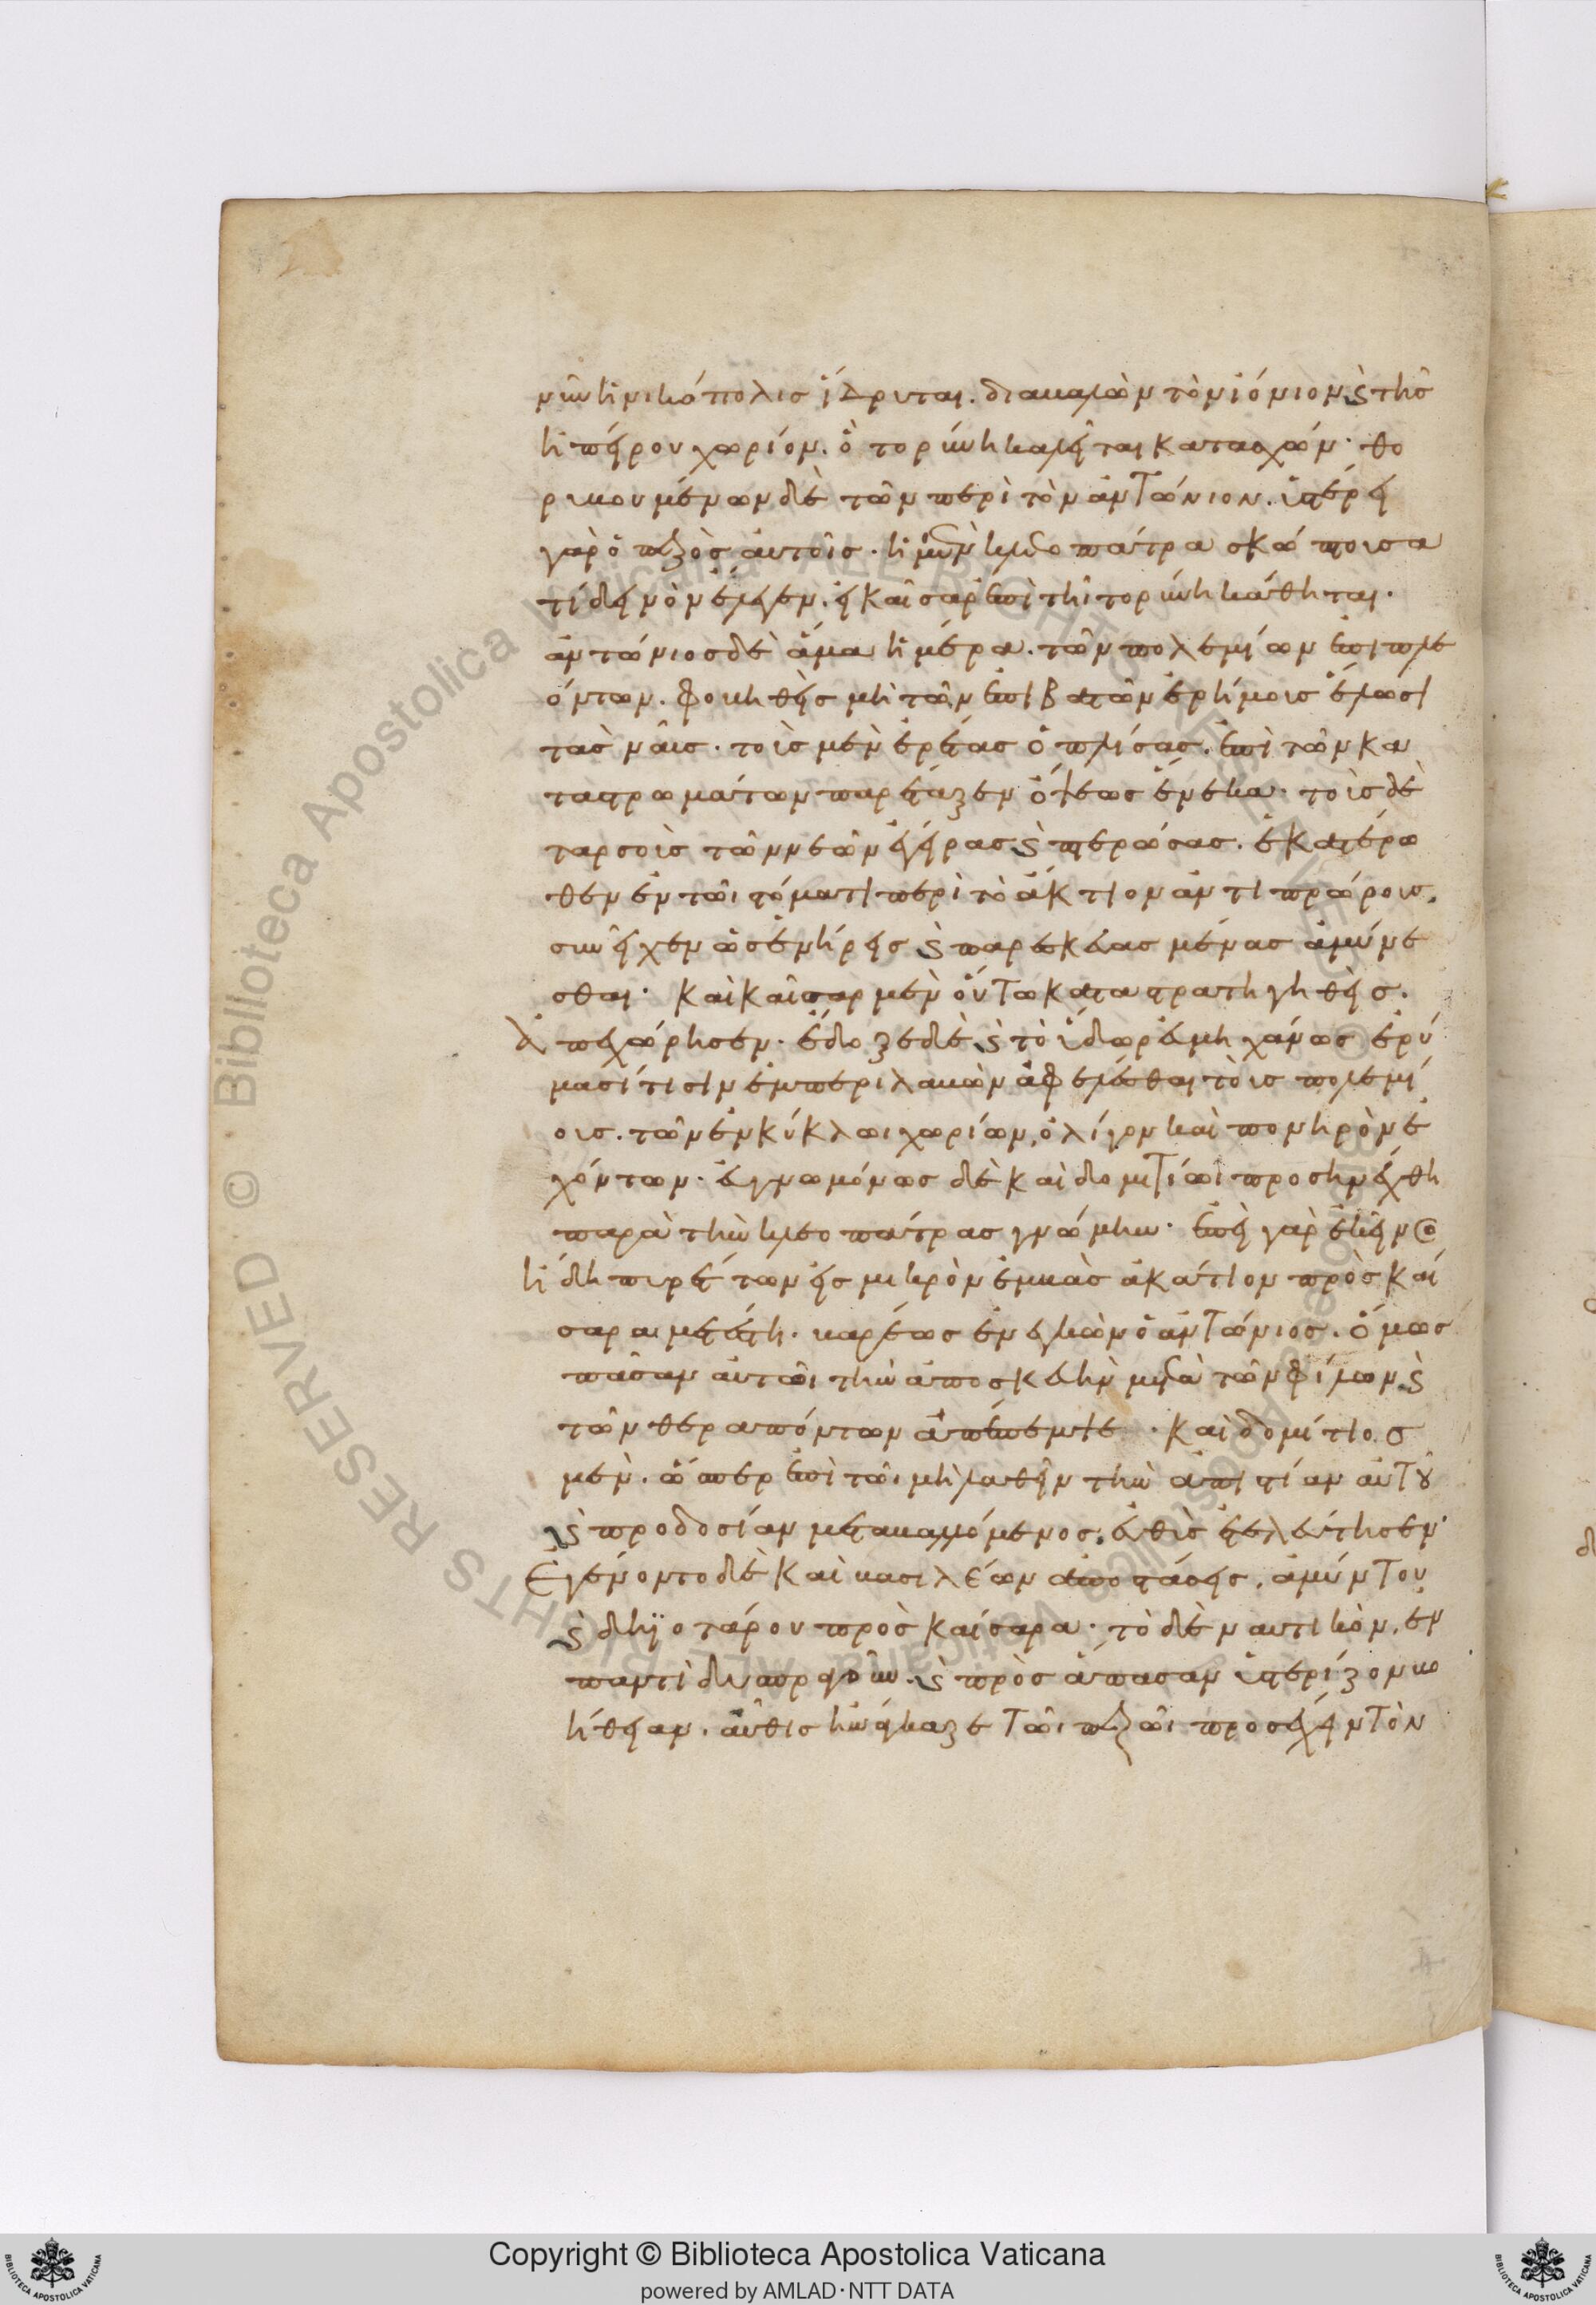 νῦν ἡ νικόπολις ἵδρυται. διαβαλὼν τὸν ἰόνιον καὶ τῆς
ἠπείρου χωρίον. ὃ τορύνη καλεῖται κατασχών· θο
ρυβουμένων δὲ τῶν περὶ τὸν ἀντώνιον. ὑστέρει
γὰρ ὁ πεζὸς αὐτοῖς. ἡ μὲν κλεοπάτρα σκώπτουσα
τί δεινὸν ἔλεγεν. εἰ καῖσαρ ἐπὶ τῆι τορύνηι κάθηται.
ἀντώνιος δὲ ἅμα ἡμέρα. τῶν πολεμίων ἐπιπλε
όντων. φοβηθεὶς μὴ τῶν ἐπιβατῶν ἐρήμους ἕλωσι
τὰς ναῦς. τοὺς μὲν ἐρέτας ὁπλίσας. ἐπὶ τῶν κα
ταστρωμάτων παρέταξεν ὄψεως ἕνεκα. τοὺς δὲ
ταρσοὺς τῶν νεῶν ἐγείρας καὶ πτερώσας. ἑκατέρω
θεν ἐν τῶι στόματι περὶ τὸ ἄκτιον ἀντιπρώρους.
συνεῖχεν ὡς ἐνήρεις καὶ παρεσκευασμένας ἀμύνε
σθαι. καὶ καῖσαρ μὲν οὕτω καταστρατηγηθεὶς.
ἀπεχώρησεν. ἔδοξε δὲ καὶ τὸ ὕδωρ εὐμηχάνως ἐρύ
μασί τισιν ἐμπεριλαβὼν ἀφελέσθαι τοὺς πολεμί
ους. τῶν ἐν κύκλωι χωρίων, ὀλίγον καὶ πονηρὸν ἐ
χόντων. εὐγνωμόνως δὲ καὶ δομιτίωι προσηνέχθη
παρὰ τὴν κλεοπάτρας γνώμην. ἐπεὶ γὰρ ἐκεῖνος
ἤδη πυρέττων εἰς μικρὸν ἐμβὰς ἀκάτιον πρὸς καί
σαρα μετέστη. βαρέως ἐνεγκὼν ὁ ἀντώνιος. ὅμως
πᾶσαν αὐτῶι τὴν ἀποσκευὴν μετὰ τῶν φίλων καὶ
τῶν θεραπόντων ἀπέπεμψε. καὶ δομίτιος
μὲν. ὥσπερ ἐπὶ τῶι μὴ λαθεῖν τὴν ἀπιστίαν αὐτοῦ
καὶ προδοσίαν μεταβαλλόμενος. εὐθὺς ἐτελεύτησεν.
Ἐγένοντο δὲ καὶ βασιλέων ἀποστάσεις. ἀμύντου
καὶ δηϊοτάρου πρὸς καίσαρα. τὸ δὲ ναυτικὸν, ἐν
παντὶ δυσπραγοῦν. καὶ πρὸς ἅπασαν ὑστερίζον βο
ήθειαν. αὖθις ἠνάγκαζε τῶι πεζῶι προσέχειν τὸν